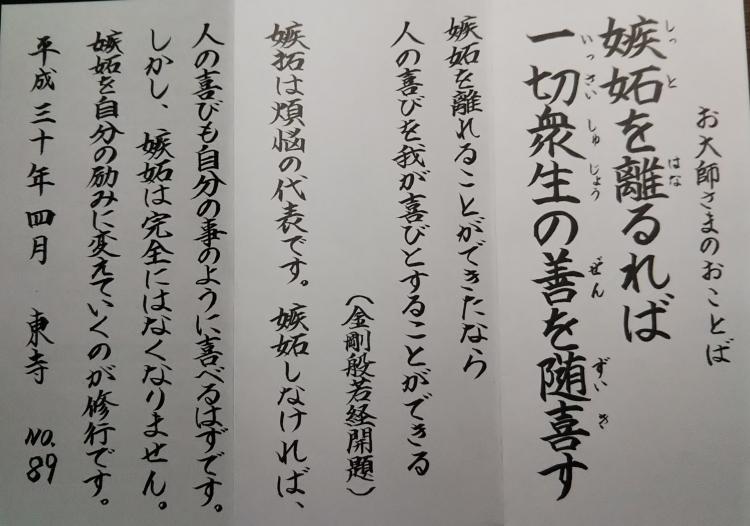 お大師さまのおことば
嫉妬を離るれば
一切衆生の善を随喜す
しっと
はな
いっさいしゅじょう
ぜん
ずいき
嫉妬を離れることができたなら
人の喜びを我が喜びとすることができる
(金剛般若経開題)
嫉妬は煩悩の代表です。嫉妬しなければ、
人の喜びも自分の事のように喜べるはずです。
しかし、嫉妬は完全にはなくなりません。
嫉妬を自分の励みに変えていくのが修行です。
平成三十年四月 東寺 NO.89